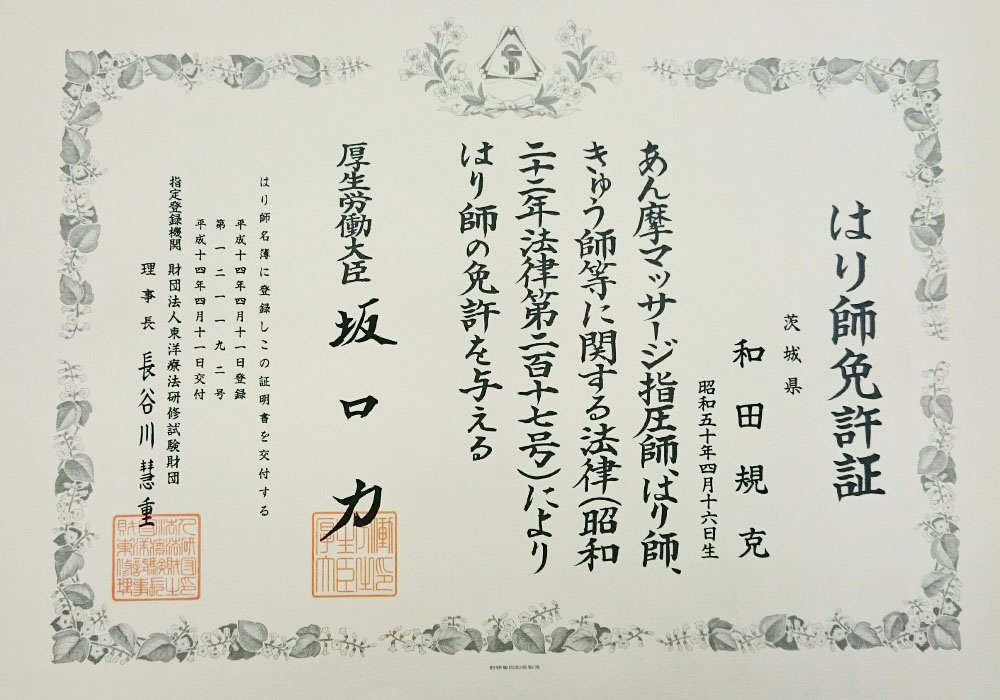 はり師免許証
茨城県
和田規克
昭和五十年四月十六日生
あん摩マッサージ指圧師、はり師、
きゅう師等に関する法律（昭和
二十二年法律第二百十七号）により
はり師の免許を与える
厚生労働大臣 坂口力
はり師名簿に登録しこの証明書を交付する
平成十四年四月十一日登録
第一二一一九二号
平成十四年四月十一日交付
指定登録機関 財団法人東洋療法研修試験財団
理事長 長谷川慧重